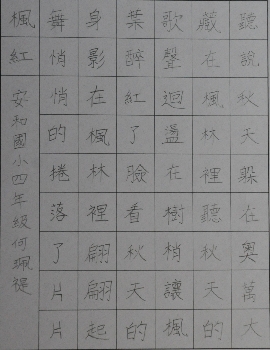 聽說秋天躲在奧萬大
藏在楓林裡聽秋天的
歌聲迴盪在樹梢讓楓
葉醉紅了臉看秋天的
身影在楓林裡翩翩起
舞悄悄的捲落了片片
楓紅
安和國小四年級何珮禔